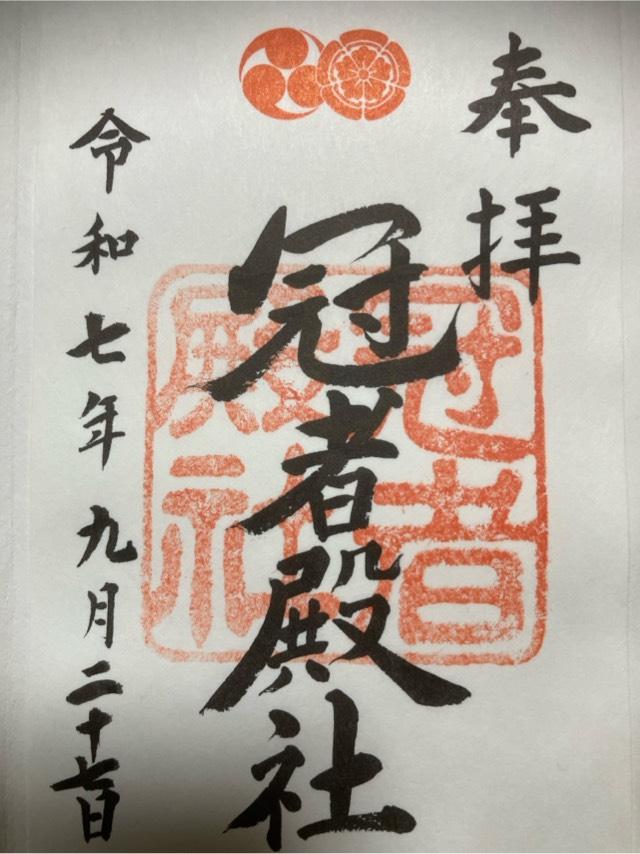 奉拝
冠者殿社
冠者殿社
令和七年九月二十七日